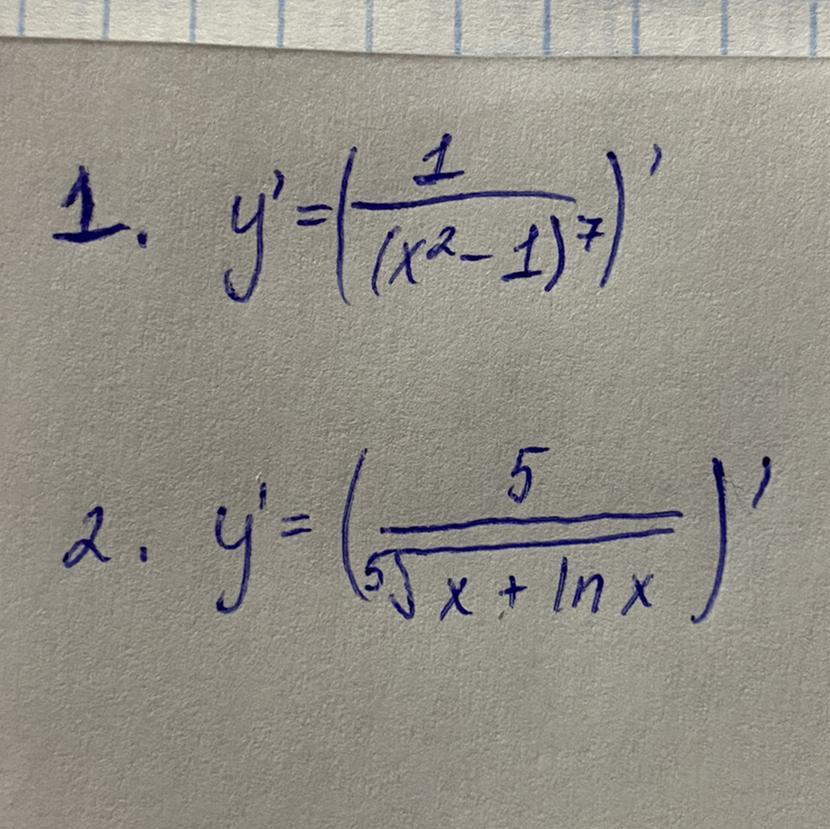 1. y' = (1/(x²-1)⁷)'
2. y' = (5/⁵√(x + ln x))'